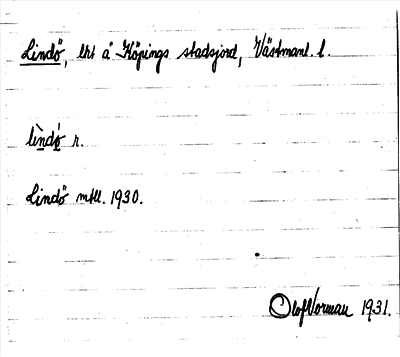 Lindö, lht å Köpings stadsjord, Västmanl. l.
lìndó r.
Lindö mtll. 1930.
Olof Norman 1931.